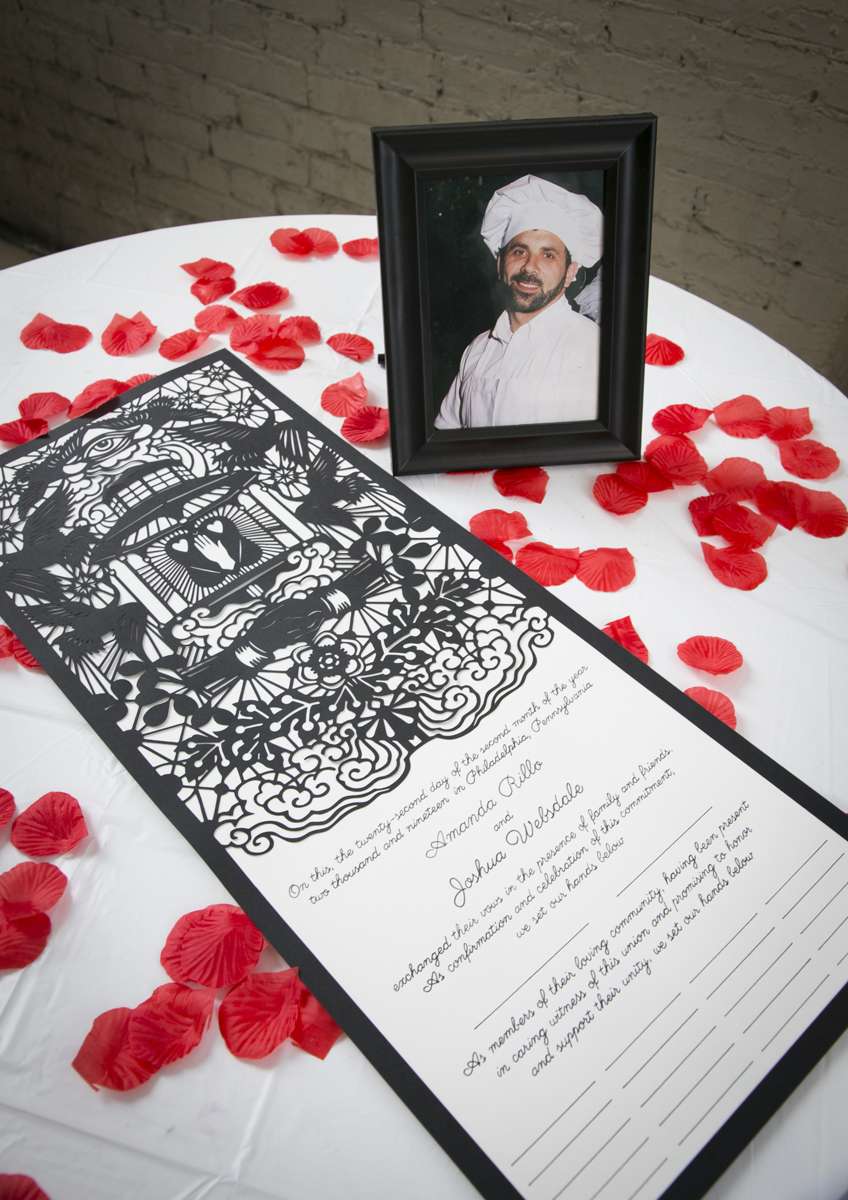 On this, the twenty-second day of the second month of the year
two thousand and nineteen in Philadelphia, Pennsylvania
Amanda Rillo
and
Joshua Websdale
exchanged their vows in the presence of family and friends.
As confirmation and celebration of this commitment,
we set our hands below
As members of their loving community, having been present
in caring witness of this union and promising to honor
and support their unity, we set our hands below